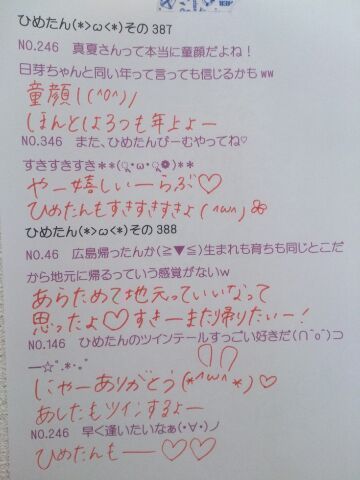 ひめたん(*>ω<*)その387
NO.246 真夏さんって本当に童顔だよね！
日芽ちゃんと同い年って言っても信じるかもww
童顔！(^0^)/
ほんとは2つも年上よー
NO.346 また、ひめたんびーむやってね♡
すきすきすき**(ू•ω•ू❁)**
やー嬉しいーらぶ♡
ひめたんもすきすきすきよ(^ω^)
ひめたん(*>ω<*)その388
NO.46 広島帰ったんか(≧▼≦)生まれも育ちも同じとこだ
から地元に帰るっていう感覚がないw
あらためて地元っていいなって
思ったよ♡すきーまた帰りたいー！
NO.146 ひめたんのツインテールすっごい好きだ(∩^o^)⊃
―☆ﾟ.*･｡ﾟ
にゃーありがとう(*^ω^*)♡
あしたもツインするよー
NO.246 早く逢いたいなぁ(・∀・)ノ
ひめたんもー♡♡